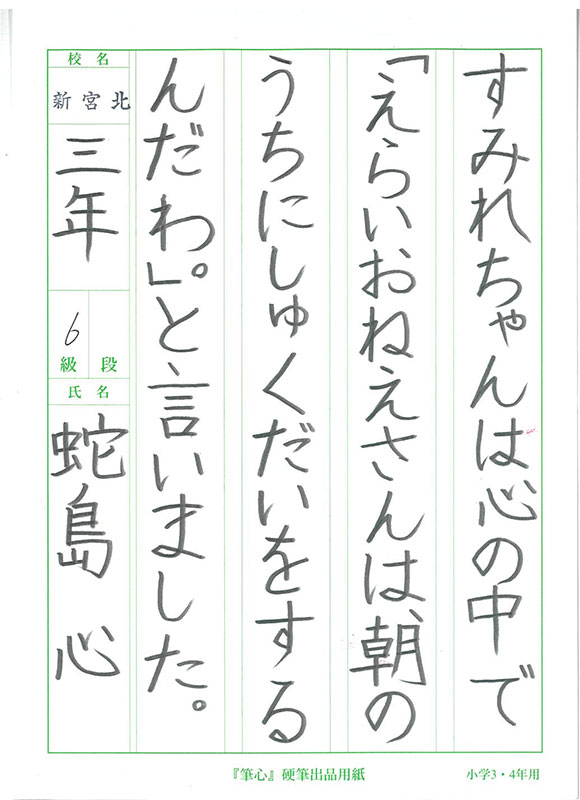 すみれちゃんは心の中で
「えらいおねえさんは、朝の
うちにしゅくだいをする
んだわ」。と言いました。
校名
新宮北
三年
級 段
6
氏名
蛇島 心
『筆心』硬筆出品用紙
小学3・4年用